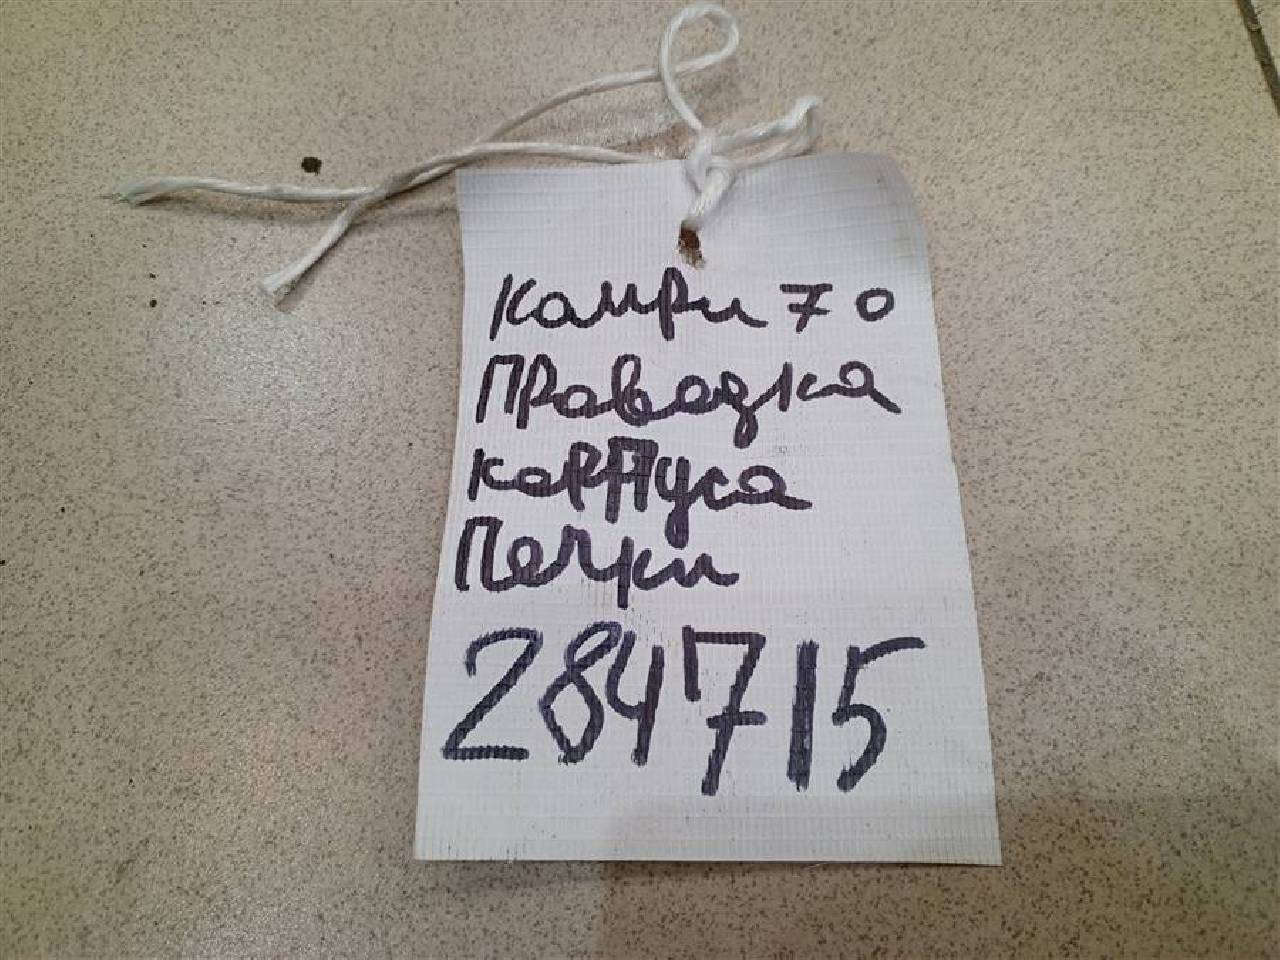 Камри 70
Праводка
корпуса
Печки
284715